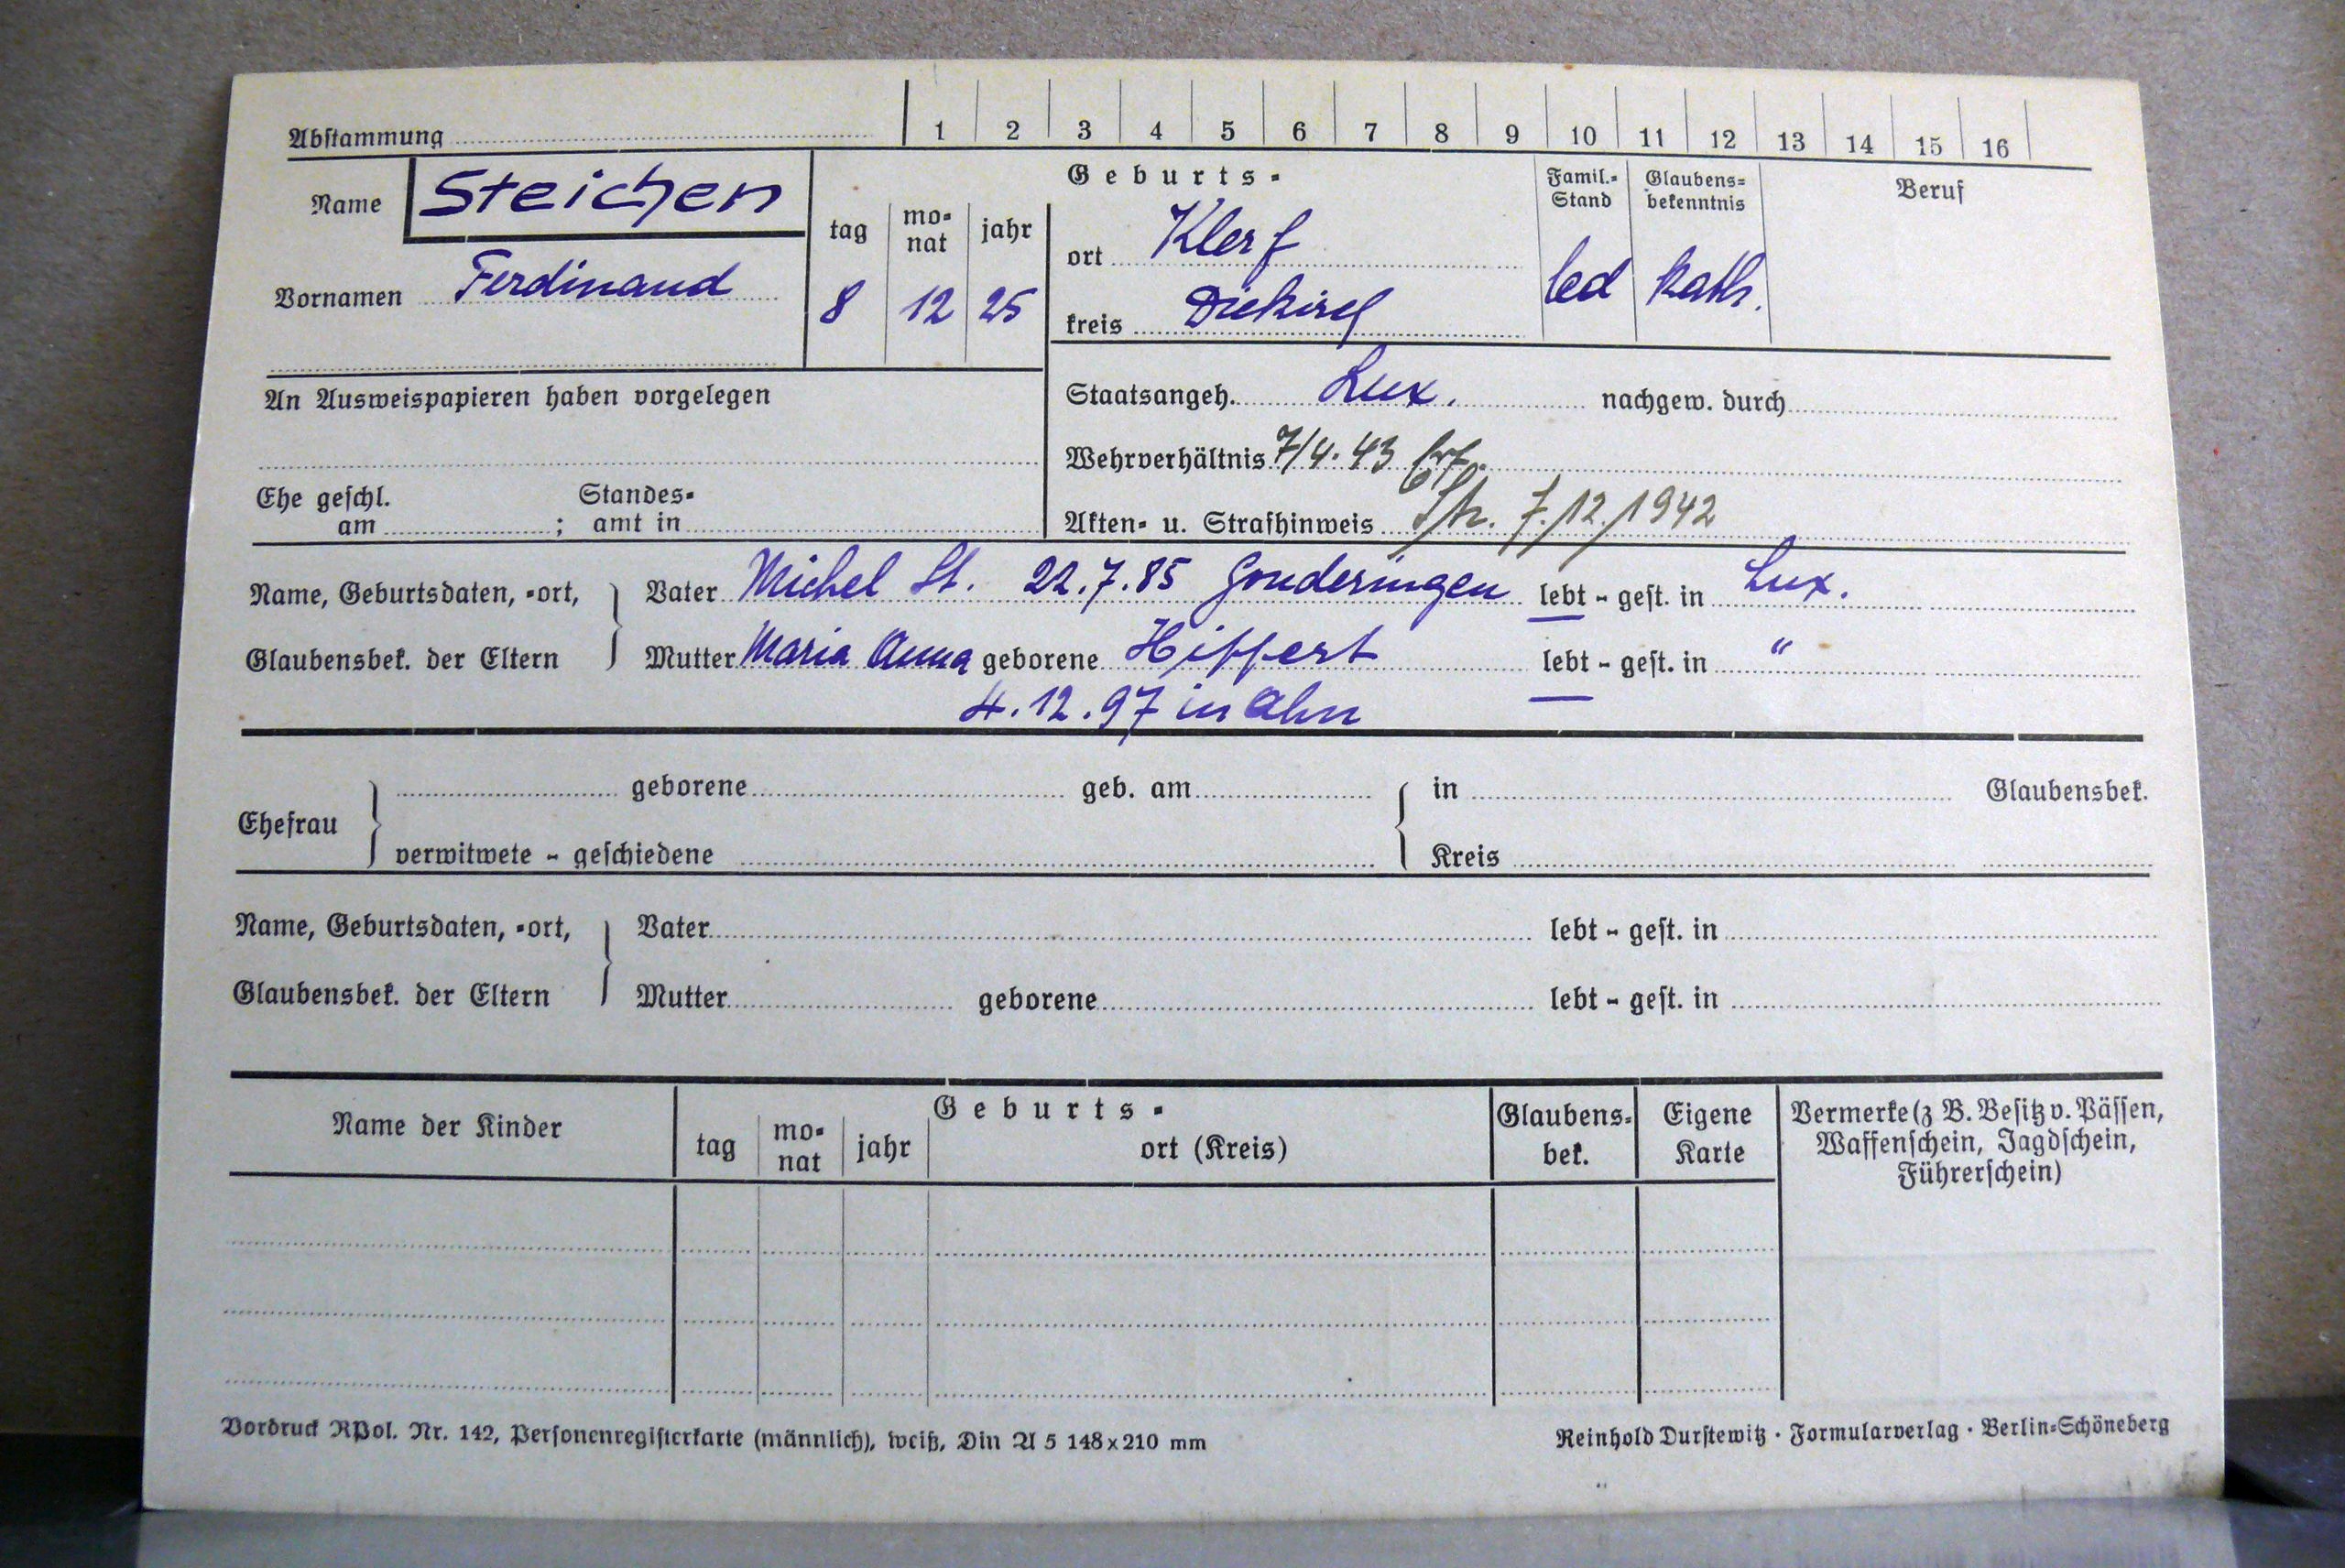 Abstammung 1 2 3 4 5 6 7 8 9 10 11 12 13 14 15 16
Name Steichen
Vornamen Ferdinand
Geburts-
tag monat jahr
8 12 25
ort Klerf
kreis Diekirch
Famil.-Stand
led
Glaubens-bekenntnis
kath.
Beruf
An Ausweispapieren haben vorgelegen
Staatsangeh. Lux. nachgew. durch
Wehrverhältnis 7/4. 43
Ehe geschl. am ; Standes-amt in
Akten- u. Strafhinweis 7./12./1942
Name, Geburtsdaten, -ort, Vater Michel St. 22.7.85 Gonderingen lebt - gest. in Lux.
Glaubensbek. der Eltern Mutter Maria Anna geborene Hiffert lebt - gest. in "
4.12.97 in Ahn
geborene geb. am in Glaubensbek.
Ehefrau
verwitwete - geschiedene Kreis
Name, Geburtsdaten, -ort, Vater lebt - gest. in
Glaubensbek. der Eltern Mutter geborene lebt - gest. in
Name der Kinder
Geburts-
tag mo-nat jahr ort (Kreis)
Glaubens-bek.
Eigene Karte
Vermerke (z B. Besitz v. Pässen,
Waffenschein, Jagdschein,
Führerschein)
Vordruck RPol. Nr. 142, Personenregisterkarte (männlich), weiß, Din A 5 148x210 mm
Reinhold Durstewitz · Formularverlag · Berlin-Schöneberg